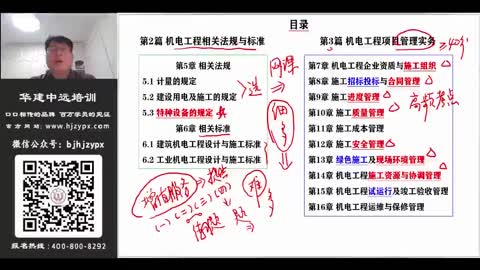 目录
第2篇 机电工程相关法规与标准
第5章 相关法规
5.1 计量的规定
5.2 建设用电及施工的规定
5.3 特种设备的规定
第6章 相关标准
6.1 建筑机电工程设计与施工标准
6.2 工业机电工程设计与施工标准
选
网课
细
多
增值服务
(一)(二)(三)(四)
难
第3篇 机电工程项目管理实务
≥40分
第7章 机电工程企业资质与施工组织
第8章 施工招标投标与合同管理
第9章 施工进度管理
第10章 施工质量管理
第11章 施工成本管理
第12章 施工安全管理
第13章 绿色施工及现场环境管理
第14章 机电工程施工资源与协调管理
第15章 机电工程试运行及竣工验收管理
第16章 机电工程运维与保修管理
高频考点
华建中远培训
口口相传的品牌 百万学员的见证
官方网站:www.hjzypx.com
微信公众号: bjhjzypx
报名热线:400-800-8292